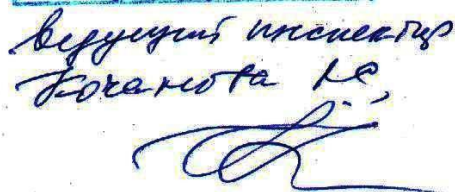 ведущий инспектор
Кочанова